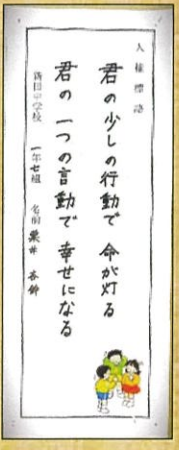 人権標語
君の少しの行動で 命が灯る
君の一つの言動で 幸せになる
中学校 一年七組 名前